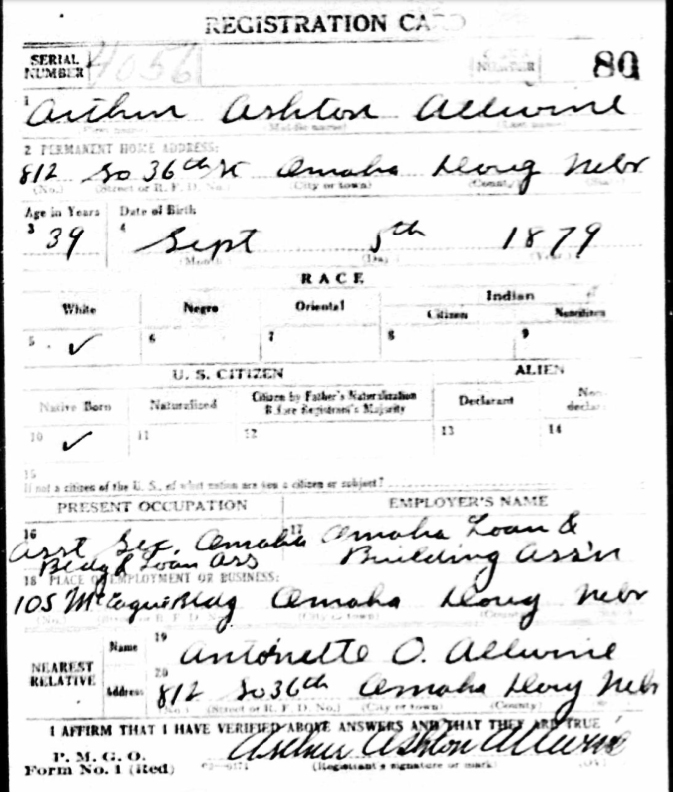 REGISTRATION CARD
SERIAL NUMBER 4056 80
1 Arthur Ashton Allwine
(First name) (Middle name) (Last name)
2 PERMANENT HOME ADDRESS:
812 So 36th St Omaha Doug Nebr
(No.) (Street or R. F. D. No.) (City or town) (County)
Age in Years Date of Birth
3 39 4 Sept 5th 1879
(Month) (Day) (Year)
RACE
White Negro Oriental Indian
Citizen Noncitizen
5 ✓ 6 7 8 9
U. S. CITIZEN ALIEN
Native Born Naturalized Citizen by Father's Naturalization Before Registrant's Majority Declarant Non-declarant
10 ✓ 11 12 13 14
15
If not a citizen of the U. S., of what nation are you a citizen or subject?
PRESENT OCCUPATION EMPLOYER'S NAME
16 Asst Sec. Omaha 17 Omaha Loan &
Bldg & Loan Ass Building Ass'n
18 PLACE OF EMPLOYMENT OR BUSINESS:
105 McCague Bldg Omaha Doug Nebr
(No.) (Street or R. F. D. No.) (City or town) (County)
NEAREST RELATIVE Name 19 Antonette O. Allwine
Address 20 812 So 36th Omaha Doug Nebr
(No.) (Street or R. F. D. No.) (City or town) (County)
I AFFIRM THAT I HAVE VERIFIED ABOVE ANSWERS AND THAT THEY ARE TRUE
P. M. G. O.
Form No. 1 (Red) Arthur Ashton Allwine
(Registrant's signature or mark)